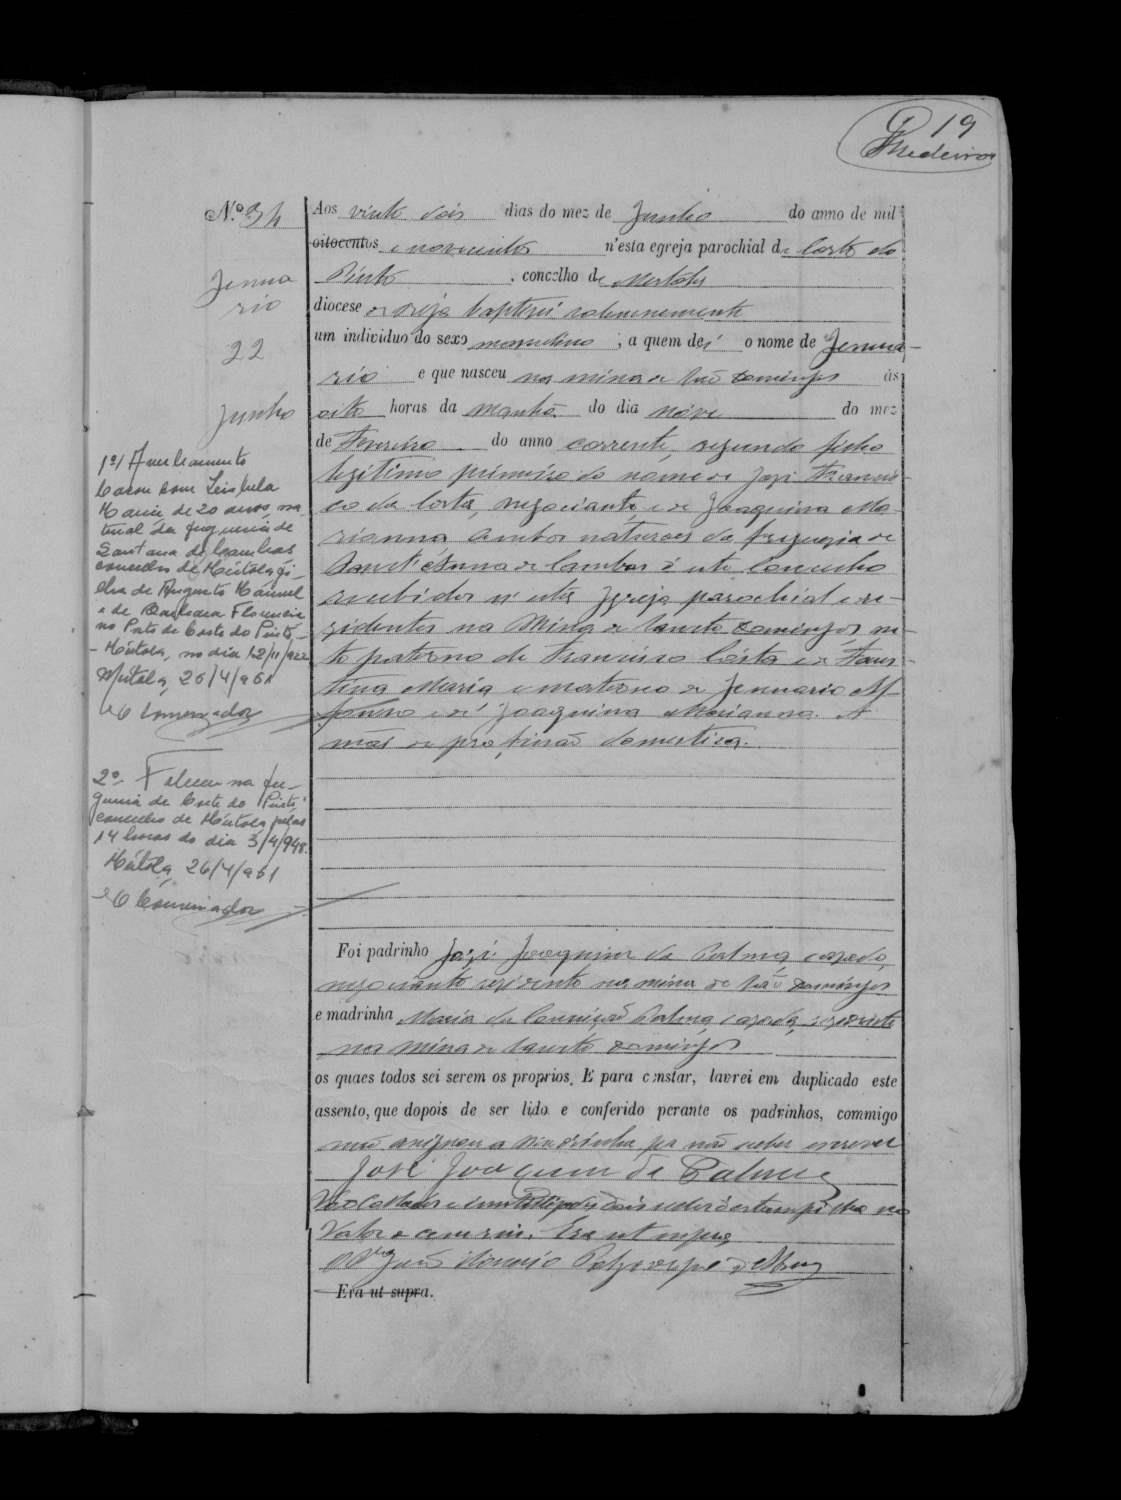 19
Medeiros
N.º 34
Jenua
rio
22
Junho
Aos vinte dois dias do mez de Junho do anno de mil
oitocentos e novecentos n'esta egreja parochial de Corte do
Pinto, concelho de Mertola
diocese de Beja baptisei solemnemente
um individuo do sexo masculino, a quem dei o nome de Jenua-
rio e que nasceu na mina de São Domingos ás
oito horas da manhã do dia nóve do mez
de Fevereiro do anno corrente, segundo filho
legitimo primeiro do nome de José Francis-
co da Costa, negociante, e de Joaquina Ma-
rianna ambos naturaes da freguezia de
Sanct'Anna de Cambas d'este Concelho
recebidos n'esta Igreja parochial e re-
zidentes na Mina de Sancto Domingos ne-
to paterno de Francisco Costa e de Faus-
tina Maria e materno de Jenuario Af-
fonso e de Joaquina Marianna. A
mãe de profissão domestica.
Foi padrinho José Joaquim da Palma, casado,
negociante residente na mina de São Domingos
e madrinha Maria da Conceição Palma, casada, residente
na mina de Sancto Domingos
os quaes todos sei serem os proprios. E para constar, lavrei em duplicado este
assento, que depois de ser lido e conferido perante os padrinhos, commigo
não assignou a madrinha por não saber escrever
José Joaquim da Palma
Vae collada e inutilisada sello d'estampilha no
Valor de cem reis. Era ut supra
Era ut supra.
1º) Averbamento
Casou com Leisbela
Maria de 20 anos, na-
tural da freguesia de
Santana de Cambas
concelho de Mértola, fi-
lha de Augusto Manuel
e de Barbara Florencia
no Posto de Corte do Pinto,
- Mértola, no dia 12/11/922
Mértola, 26/4/961
O Conservador
2º Faleceu na fre-
guesia de Corte do Pinto,
concelho de Mértola pelas
14 horas do dia 3/4/948.
Mértola, 26/4/961
O Conservador